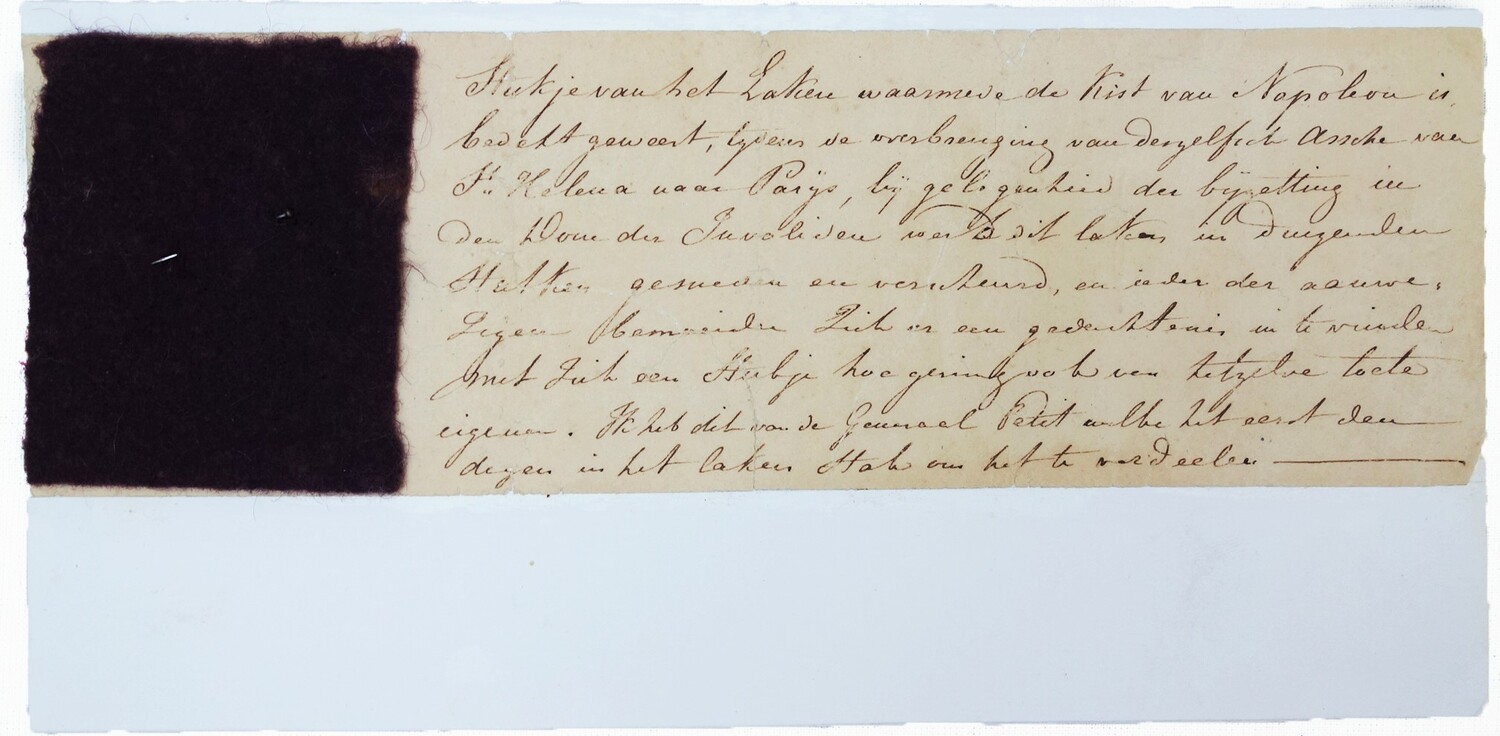 Stukje van het Laken waarmede de Kist van Napoleon is
bedekt geweest, tydens de overbrenging van deszelfs Assche van
St. Helena naar Parijs, bij gelegenheid der bijzetting in
den Dom der Invaliden werd dit laken in duizenden
Stukken gesneden en verscheurd, en ieder der aanwe-
zigen bemoeide Zich er een gedachtenis in te vinden
met Zich een Stukje hoe gering ook van hetzelve toete
eigenen. Ik heb dit van de Generael Petit welke het eerst den
degen in het laken Stak om het te verdeelen